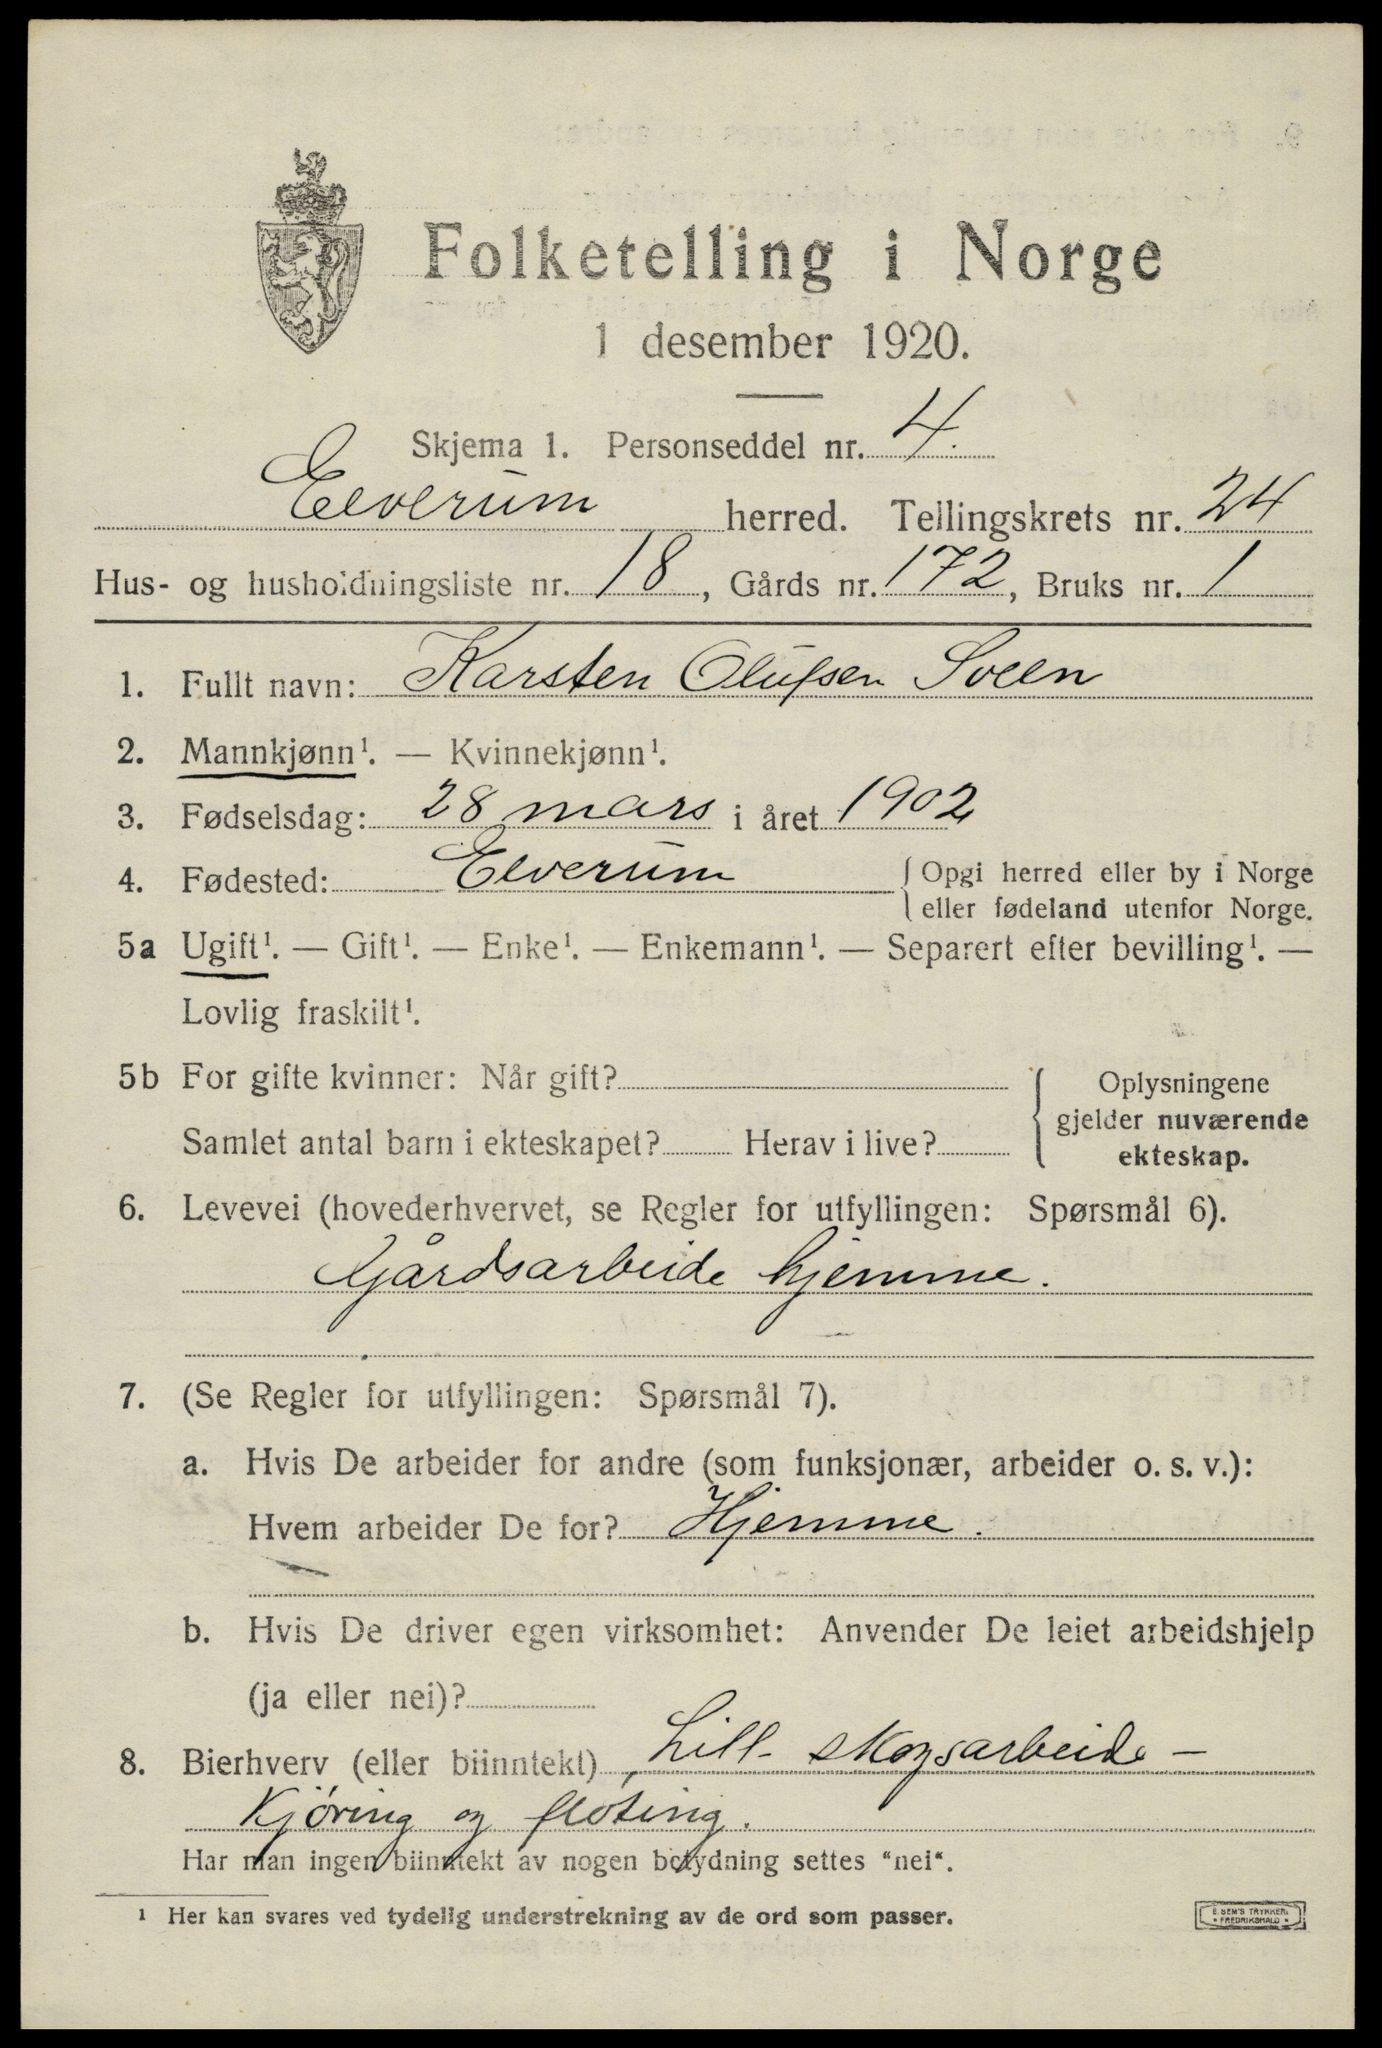 Folketelling i Norge
1 desember 1920.
Skjema 1. Personseddel nr. 4.
Elverum herred. Tellingskrets nr. 24
Hus- og husholdningsliste nr. 18, Gårds nr. 172, Bruks nr. 1
1. Fullt navn: Karsten Olufsen Sveen
2. Mannkjønn¹. — Kvinnekjønn¹.
3. Fødselsdag: 28 mars i året 1902
4. Fødested: Elverum { Opgi herred eller by i Norge
eller fødeland utenfor Norge.
5a Ugift¹. — Gift¹. — Enke¹. — Enkemann¹. — Separert efter bevilling¹. —
Lovlig fraskilt¹.
5b For gifte kvinner: Når gift?
Samlet antal barn i ekteskapet? Herav i live?
Oplysningene
gjelder nuværende
ekteskap.
6. Levevei (hovederhvervet, se Regler for utfyllingen: Spørsmål 6).
Gårdsarbeide hjemme.
7. (Se Regler for utfyllingen: Spørsmål 7).
a. Hvis De arbeider for andre (som funksjonær, arbeider o. s. v.):
Hvem arbeider De for? Hjemme.
b. Hvis De driver egen virksomhet: Anvender De leiet arbeidshjelp
(ja eller nei)?
8. Bierhverv (eller biinntekt) Litt- skogsarbeide –
Kjøring og fløting.
Har man ingen biinntekt av nogen betydning settes "nei".
¹ Her kan svares ved tydelig understrekning av de ord som passer.
E. SEM'S TRYKKERI
FREDRIKSHALD